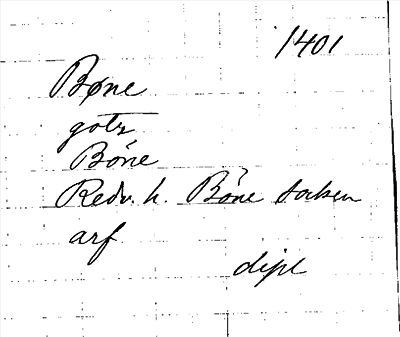 1401
Bøne
gotz
Böne
Redv. h. Böne socken
arf
dipl